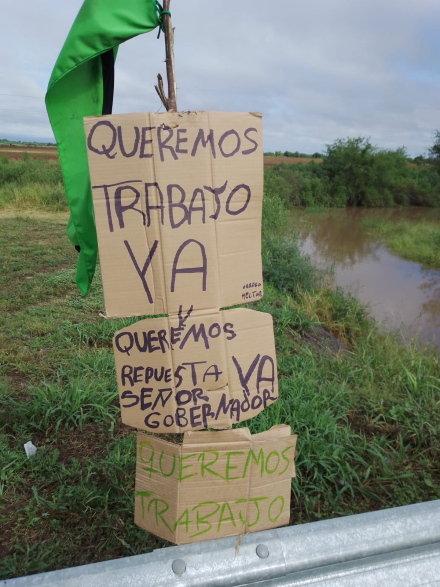 QUEREMOS
TRABAJO
YA
Y
QUEREMOS
REPUESTA YA
SEÑOR
GOBERNADOR
QUEREMOS
TRABAJO